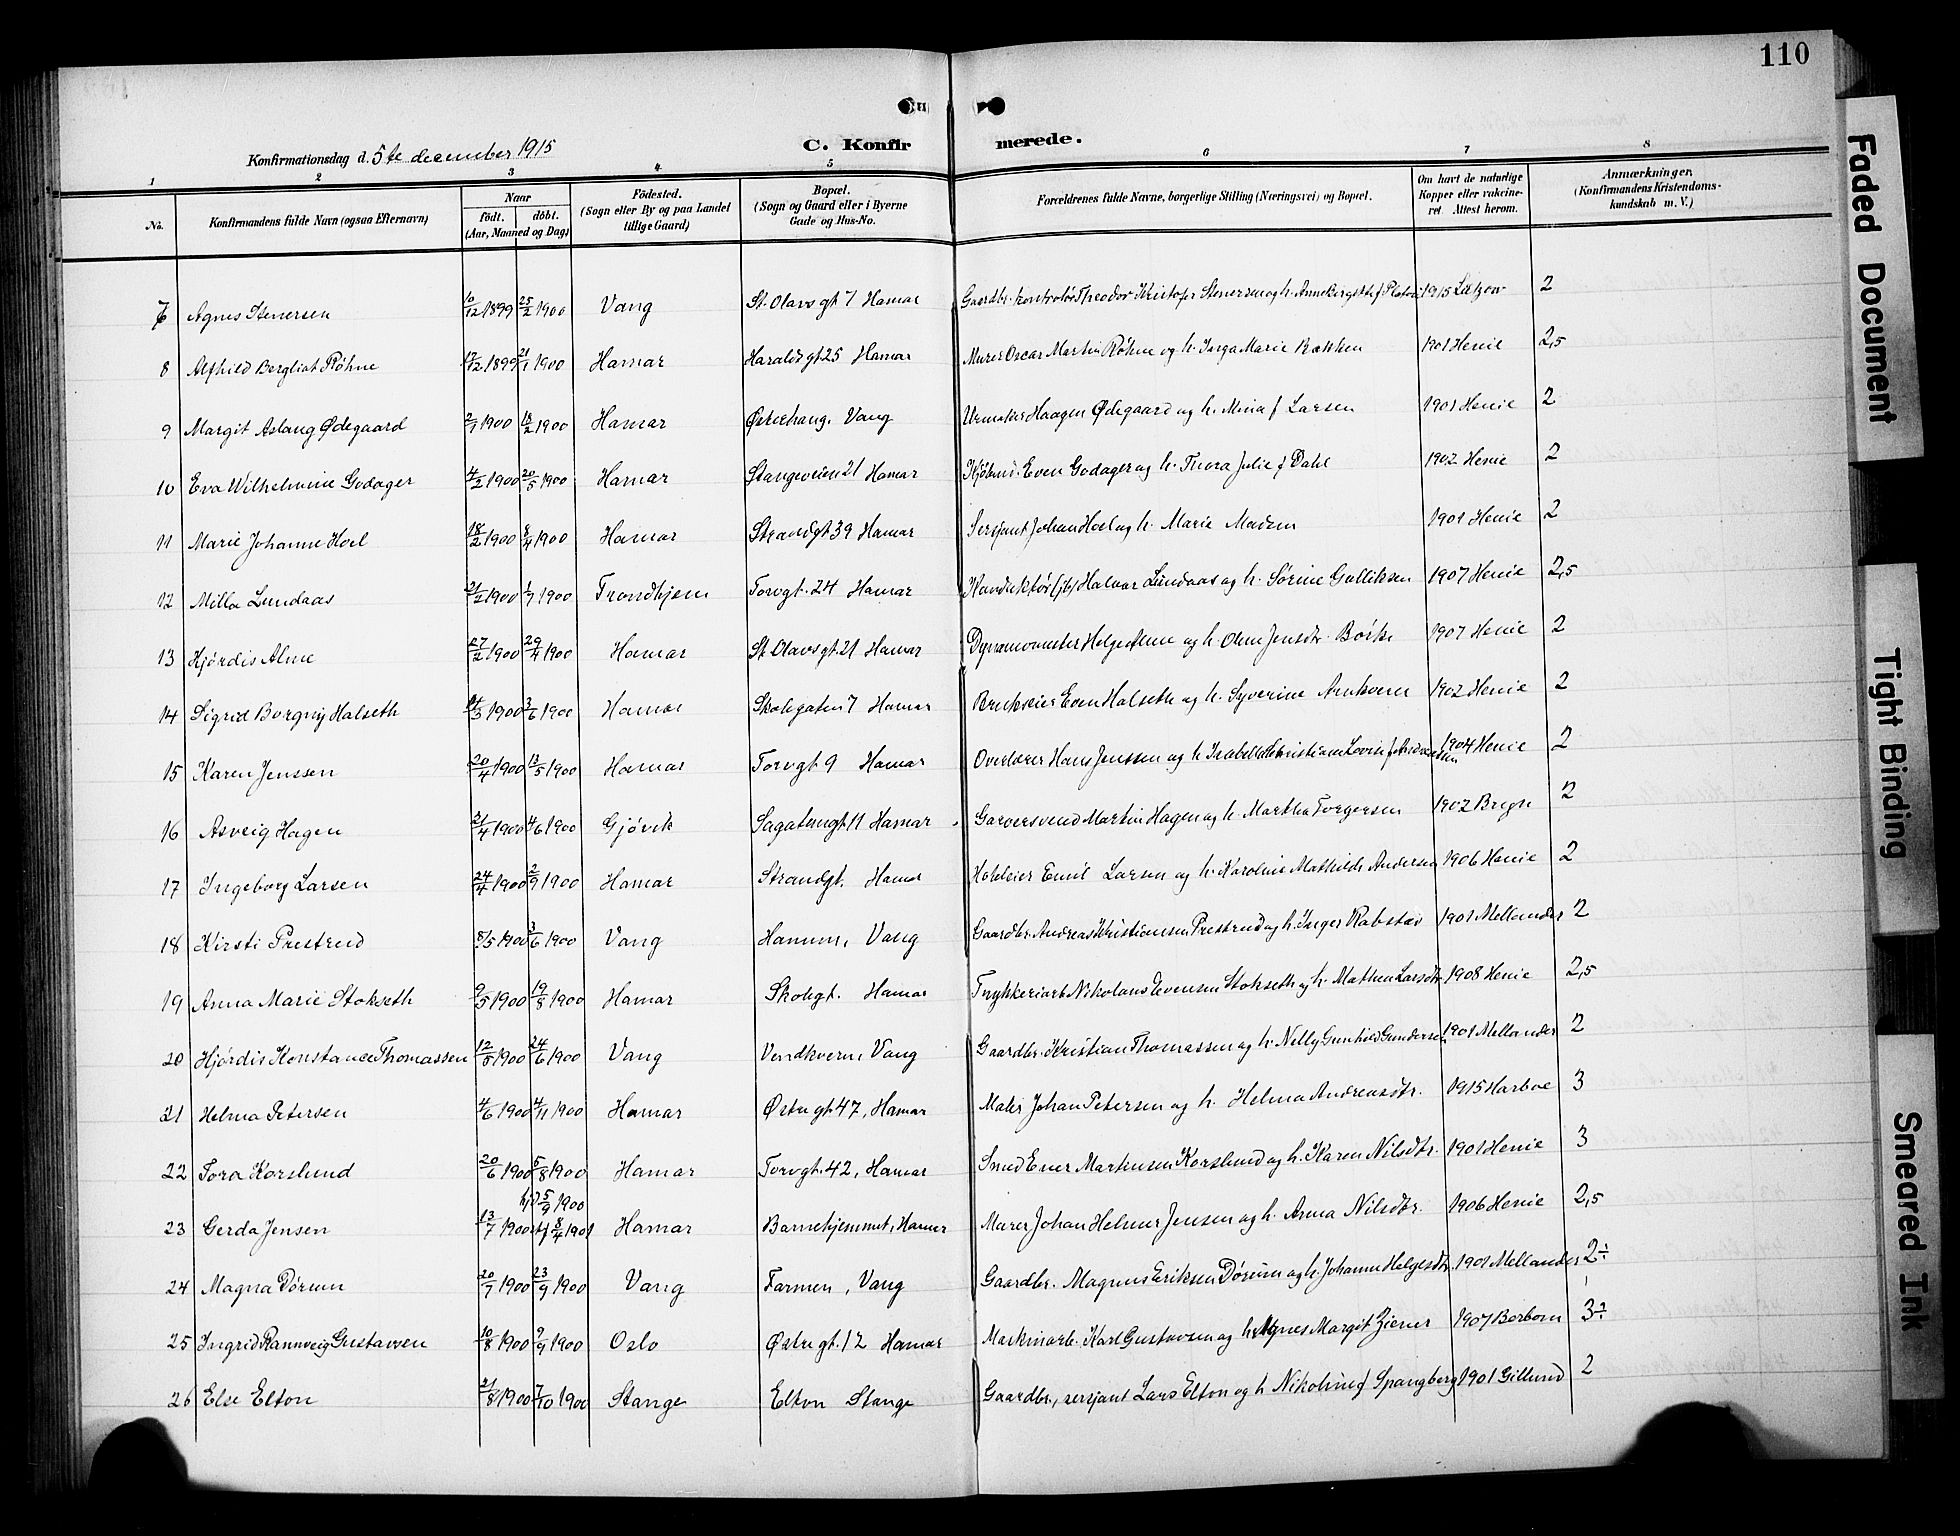 110
Konfirmationsdag d. 5te december 1915
C. Konfirmerede.
1 2 3 4 5 6 7 8
No. Konfirmandens fulde Navn (ogsaa Efternavn) Naar født. døbt. (Aar, Maaned og Dag) Fødested. (Sogn eller By og paa Landet tillige Gaard) Bopæl. (Sogn og Gaard eller i Byerne Gade og Hus-No. Forældrenes fulde Navne, borgerlige Stilling (Næringsvei) og Bopæl. Om havt de naturlige Kopper eller vakcineret. Attest herom. Anmærkninger, (Konfirmandens Kristendomskundskab m. V.)
7 Agnes Stenersen 10/12 1899 25/2 1900 Vang St. Olavsgt 7 Hamar Gaardbr. kontrolør Theodor Kristofer Stenersen og h. 1915 Lützow 2
8 Alfhild Bergliot Røhne 17/12 1899 21/1 1900 Hamar Haraldsgt 25 Hamar Murer Oscar Martin Røhne og h. Inga Marie Bækken 1901 Henie 2,5
9 Margit Aslaug Ødegaard 2/1 1900 18/2 1900 Hamar Østrehaug, Vang Urmaker Haagen Ødegaard og h. Mina f Larsen 1901 Henie 2
10 Eva Wilhelmine Godager 4/2 1900 20/5 1900 Hamar Stangeveien 21 Hamar Kjøbmd. Even Godager og h. Thora Julie f Dahl 1902 Henie 2
11 Marie Johanne Hoel 18/2 1900 8/4 1900 Hamar Strandgt 39 Hamar Sersjant Johan Hoel og h. Marie Madsen 1901 Henie 2
12 Milla Lundaas 21/2 1900 1/7 1900 Trondhjem Torvgt. 24 Hamar Konduktør (jb) Halvor Lundaas og h. Sørine Gulliksen 1907 Henie 2,5
13 Hjørdis Alme 27/2 1900 29/4 1900 Hamar St. Olavsgt. 21 Hamar Dynamomester Helge Alme og h. Oline Jensdtr. Borke 1907 Henie 2
14 Sigrid Borgny Halseth 14/3 1900 3/6 1900 Hamar Skolegaten 7 Hamar Brukseier Even Halseth og h. Syverine Arnkværn 1902 Henie 2
15 Karen Jenssen 20/4 1900 13/5 1900 Hamar Torvgt 9 Hamar Overlærer Hans Jenssen og h. Isabella Christiane Lovise f. Andreassen 1904 Henie 2
16 Asveig Hagen 21/4 1900 4/6 1900 Gjøvik Sagatungt 11 Hamar Garversvend Martin Hagen og h. Martha Torgersen 1902 Bryn 2
17 Ingeborg Larsen 24/4 1900 2/9 1900 Hamar Strandgt. Hamar Hoteleier Emil Larsen og h. Karoline Mathilde Andersen 1906 Henie 2
18 Kirsti Prestrud 8/5 1900 3/6 1900 Vang Hammer, Vang Gaardbr. Andreas Kristiansen Prestrud og h. Inger Rabstad 1901 Mellander 2
19 Anna Marie Stokseth 9/5 1900 19/8 1900 Hamar Skolegt. Hamar Trykkeriarb. Nikolaus Evensen Stokseth og h. Mathea Larsdtr. 1908 Henie 2,5
20 Hjørdis Konstance Thomassen 12/5 1900 24/6 1900 Vang Vendkvern, Vang Gaardbr. Kristian Thomassen og h. Nelly Gunhild Gundersen 1901 Mellander 2
21 Helma Petersen 4/6 1900 4/11 1900 Hamar Østregt 47, Hamar Maler Johan Petersen og h. Helma Andreasdtr. 1915 Harboe 3
22 Tora Korslund 20/6 1900 5/8 1900 Hamar Torvgt. 42, Hamar Smed Ener Martinsen Korslund og h. Karen Nilsdtr. 1901 Henie 3
23 Gerda Jensen 13/7 1900 hjd 5/9 1900 stf 8/4 1901 Hamar Barnehjemmet, Hamar Murer Johan Helmer Jensen og h. Anna Nilsdtr. 1906 Henie 2,5
24 Magna Dørum 20/7 1900 23/9 1900 Vang Farmen, Vang Gaardbr. Magnus Eriksen Dørum og h. Johanne Helgesdtr. 1901 Mellander 2÷
25 Ingrid Rannveig Gustavsen 10/8 1900 9/9 1900 Oslo Østregt. 12 Hamar Maskinarb. Karl Gustavsen og h. Agnes Margit Ziener 1907 Borbom 3÷
26 Else Elton 21/8 1900 7/10 1900 Stange Elton Stange Gaardbr., sersjant Lars Elton og h Nikoline f Spangberg 1901 Gillund 2
Faded Document
Tight Binding
Smeared Ink